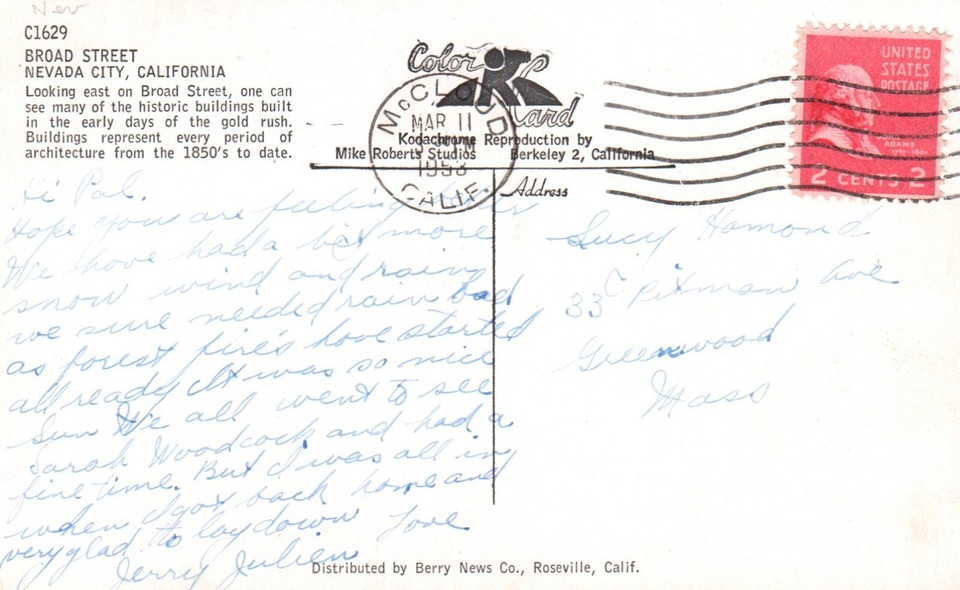 Nev
C1629
BROAD STREET
NEVADA CITY, CALIFORNIA
Looking east on Broad Street, one can
see many of the historic buildings built
in the early days of the gold rush.
Buildings represent every period of
architecture from the 1850's to date.
Color Card
Kodachrome Reproduction by
Mike Roberts Studios Berkeley 2, California
McCLOUD
MAR 11
1958
CALIF
UNITED
STATES
POSTAGE
ADAMS
2 CENTS 2
Address
Hi Pal.
Hope you are feeling better
We have had a bit more
snow wind and rain
we sure needed rain bad
as forest fire's have started
all ready It was so nice
Sun We all went to see
Sarah Woodcock and had a
fine time. But I was all in
when I got back home and
very glad to lay down Love
Jerry Julien
Lucy Hamond
33 Pitman Ave
Greenwood
Mass
Distributed by Berry News Co., Roseville, Calif.